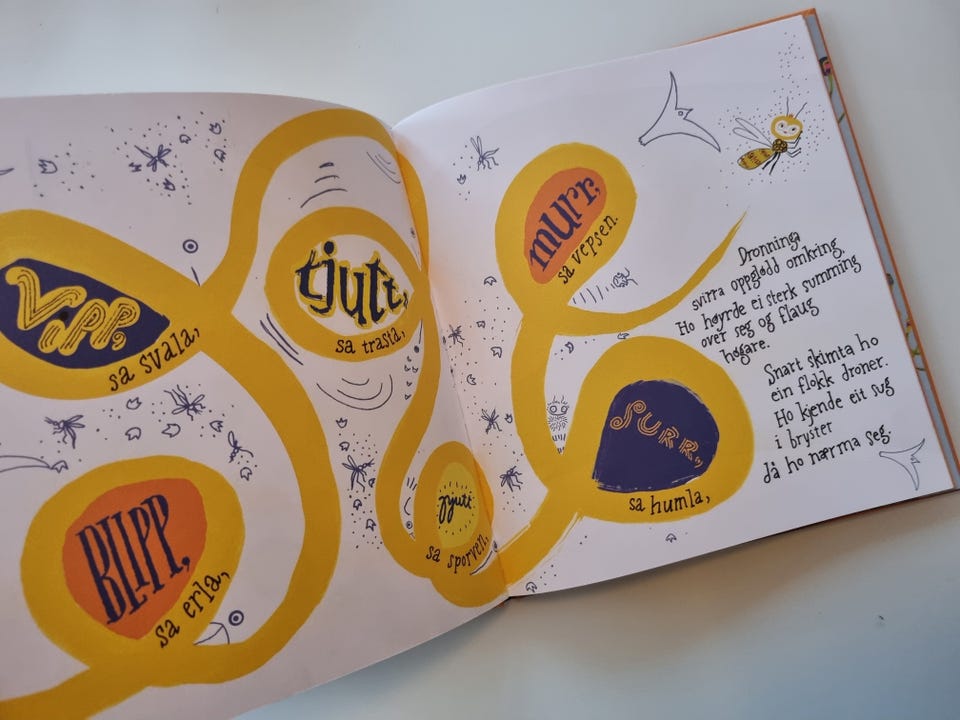 Vipp,
sa svala,
Blipp,
sa erla,
tjutt,
sa trasta,
pjutt
sa sporven,
murr,
sa vepsen.
Surr,,
sa humla,
Dronninga
svirra oppglødd omkring.
Ho høyrde ei sterk summing
over seg og flaug
høgare.
Snart skimta ho
ein flokk droner.
Ho kjende eit sug
i bryster
då ho nærma seg.